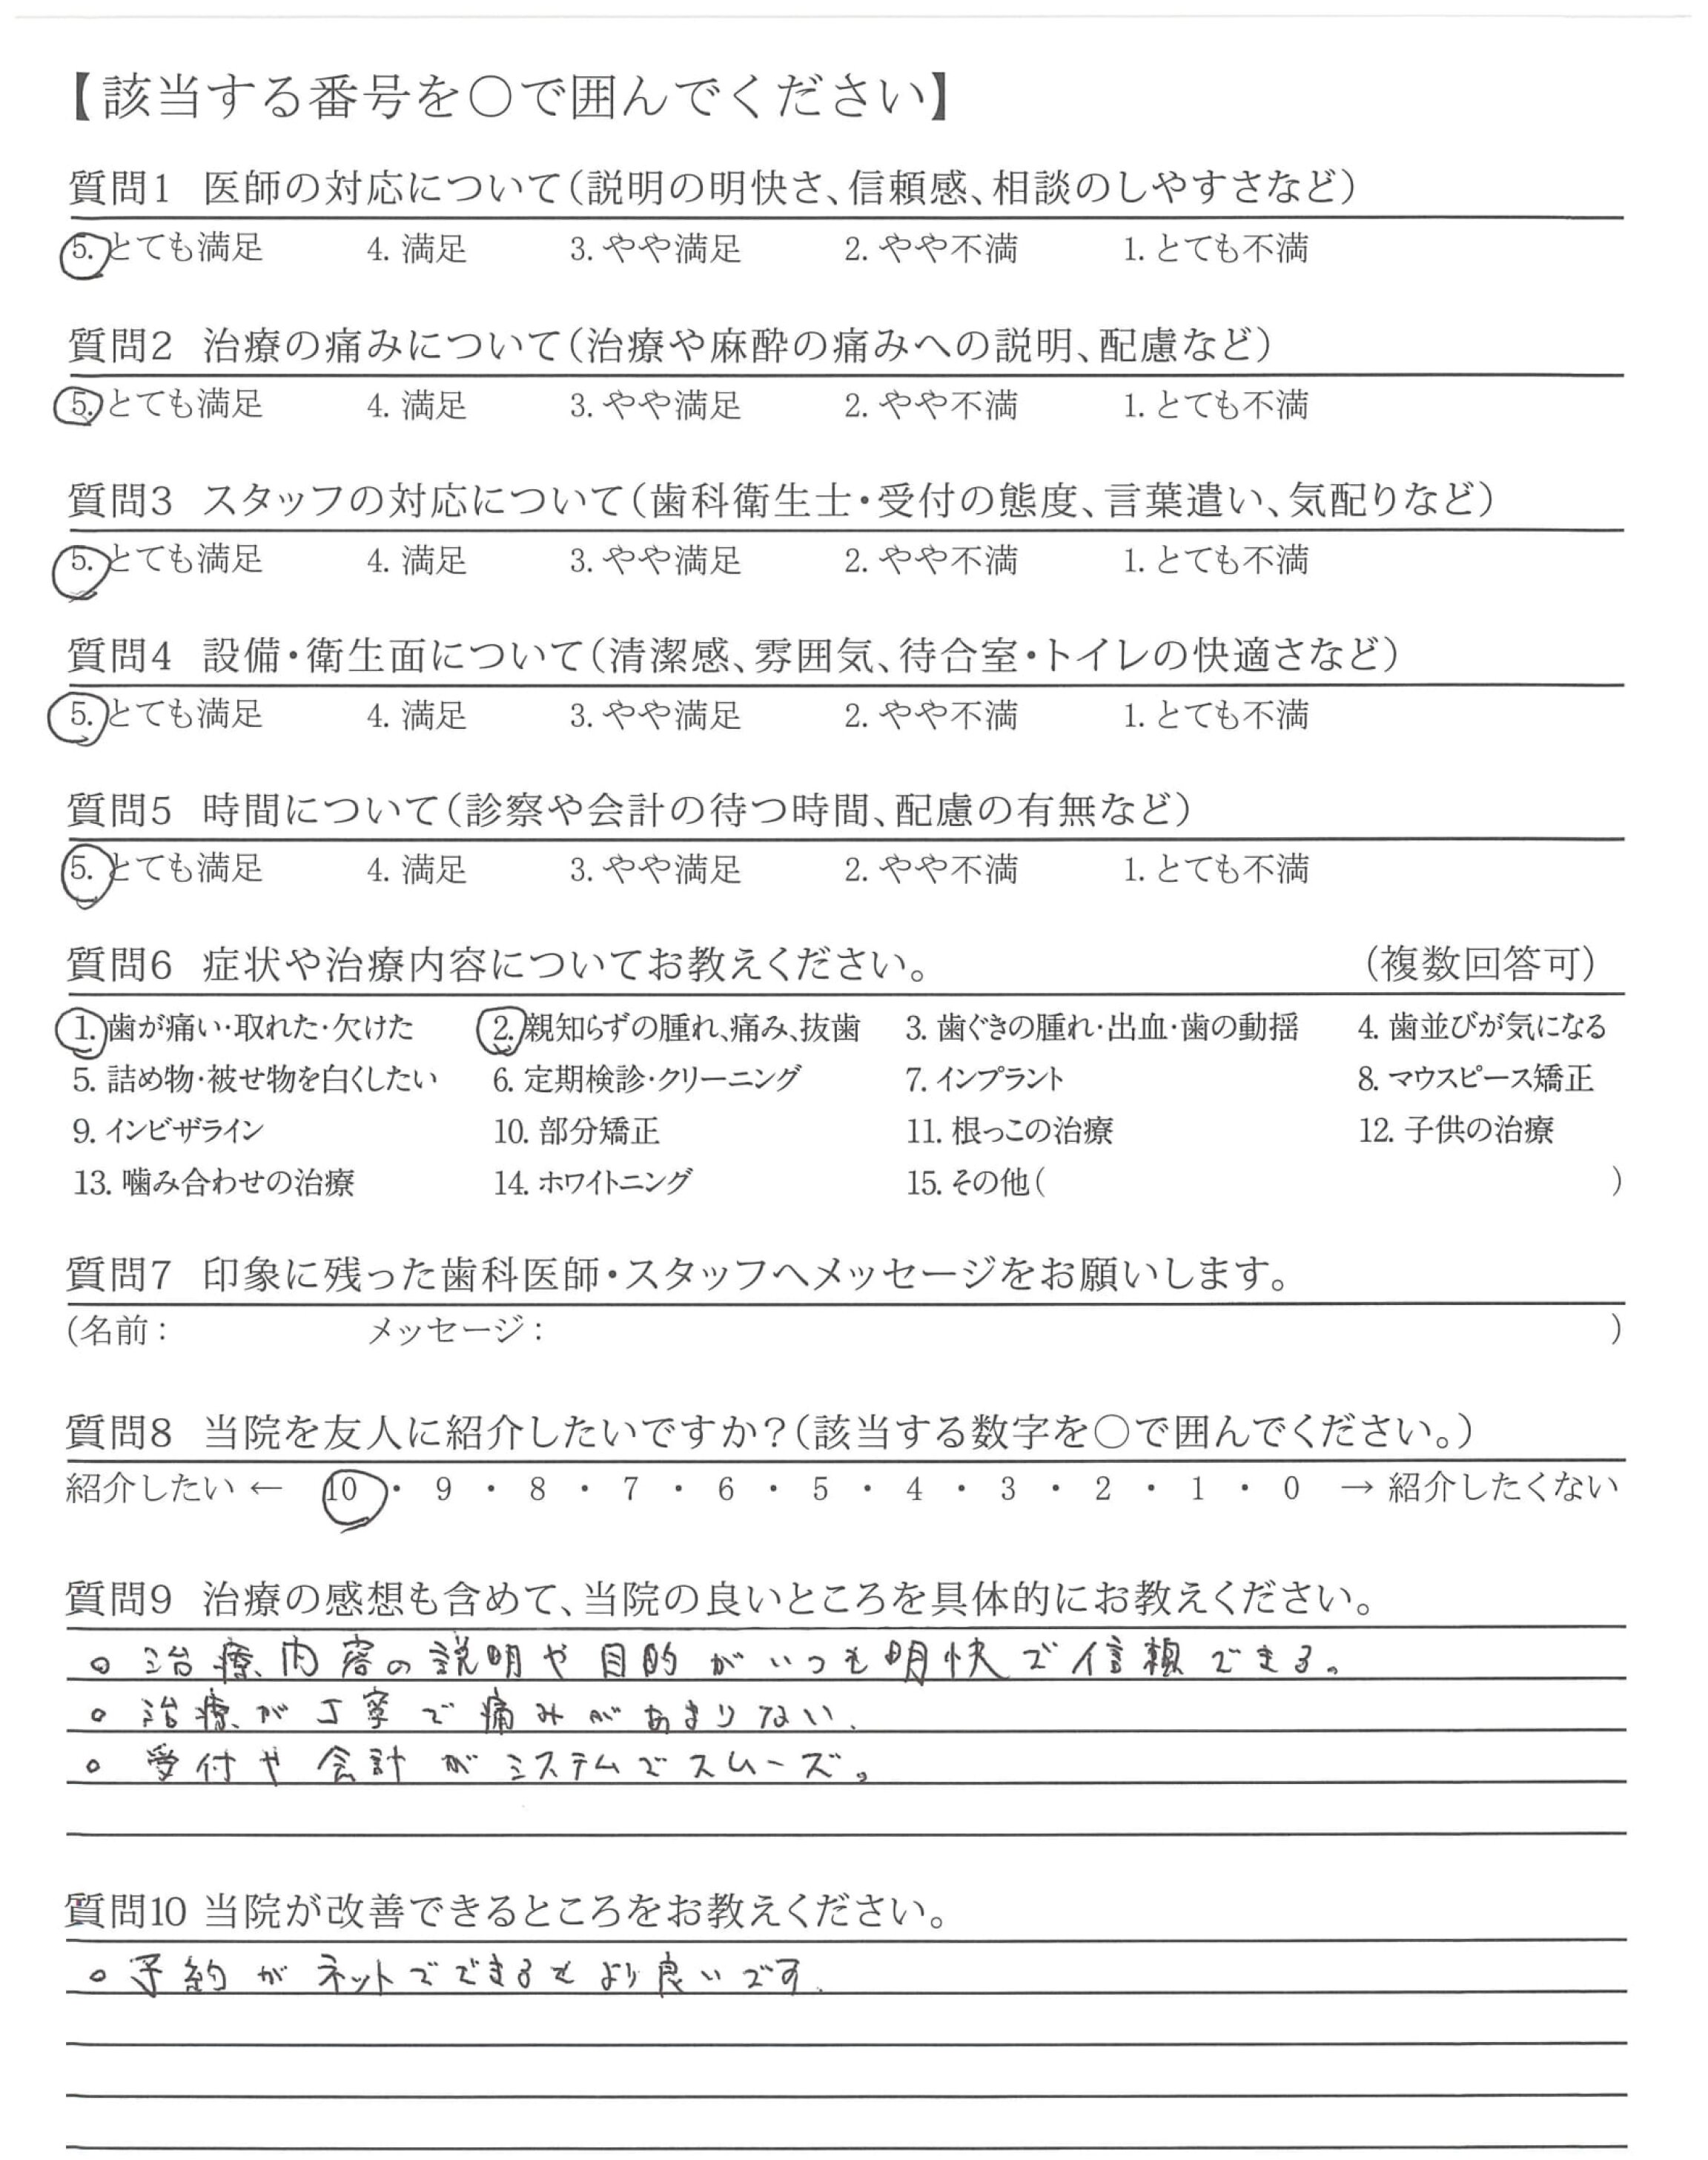 【該当する番号を○で囲んでください】
質問1 医師の対応について(説明の明快さ、信頼感、相談のしやすさなど)
5. とても満足 4. 満足 3. やや満足 2. やや不満 1. とても不満
質問2 治療の痛みについて(治療や麻酔の痛みへの説明、配慮など)
5. とても満足 4. 満足 3. やや満足 2. やや不満 1. とても不満
質問3 スタッフの対応について(歯科衛生士・受付の態度、言葉遣い、気配りなど)
5. とても満足 4. 満足 3. やや満足 2. やや不満 1. とても不満
質問4 設備・衛生面について(清潔感、雰囲気、待合室・トイレの快適さなど)
5. とても満足 4. 満足 3. やや満足 2. やや不満 1. とても不満
質問5 時間について(診察や会計の待つ時間、配慮の有無など)
5. とても満足 4. 満足 3. やや満足 2. やや不満 1. とても不満
質問6 症状や治療内容についてお教えください。 (複数回答可)
1. 歯が痛い・取れた・欠けた 2. 親知らずの腫れ、痛み、抜歯 3. 歯ぐきの腫れ・出血・歯の動揺 4. 歯並びが気になる
5. 詰め物・被せ物を白くしたい 6. 定期検診・クリーニング 7. インプラント 8. マウスピース矯正
9. インビザライン 10. 部分矯正 11. 根っこの治療 12. 子供の治療
13. 噛み合わせの治療 14. ホワイトニング 15. その他( )
質問7 印象に残った歯科医師・スタッフへメッセージをお願いします。
(名前: メッセージ: )
質問8 当院を友人に紹介したいですか?(該当する数字を○で囲んでください。)
紹介したい ← 10 ・ 9 ・ 8 ・ 7 ・ 6 ・ 5 ・ 4 ・ 3 ・ 2 ・ 1 ・ 0 → 紹介したくない
質問9 治療の感想も含めて、当院の良いところを具体的にお教えください。
○ 治療内容の説明や目的がいつも明快で信頼できる。
○ 治療が丁寧で痛みがあまりない。
○ 受付や会計がシステムでスムーズ。
質問10 当院が改善できるところをお教えください。
○ 予約がネットでできるとより良いです。